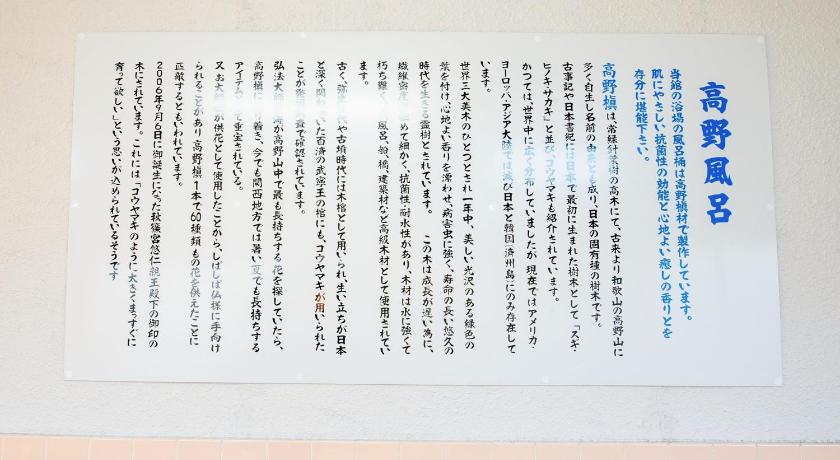 高野風呂
当館の浴場の風呂桶は高野槙材で製作しています。
肌にやさしい抗菌性の効能と心地よい癒しの香りとを
存分に堪能下さい。
高野槇は、常緑針葉樹の高木にて、古来より和歌山の高野山に
多く自生し名前の由来とも成り、日本の固有種の樹木です。
古事記や日本書紀には日本で最初に生まれた樹木として「スギ・
ヒノキ・サカキ」と並びコウヤマキも紹介されています。
かつては、世界中に広く分布していましたが現在ではアメリカ・
ヨーロッパ・アジア大陸では滅び日本と韓国（済州島）にのみ存在して
います。
世界三大美木のひとつとされ一年中、美しい光沢のある緑色の
葉を付け、心地よい香りを漂わせ、病害虫に強く、寿命の長い悠久の
時代を生きる霊樹とされています。 この木は成長が遅い為に、
繊維密度が極めて細かく、抗菌性・耐水性があり、木材は水に強くて
朽ち難く、風呂、船、橋、建築材など高級木材として使用されてい
ます。
古く、弥生時代や古墳時代には木棺として用いられ、生い立ちが日本
と深く関わいた百済の武寧王の棺にも、コウヤマキが用いられた
ことが発掘調査で確認されています。
弘法大師空海が高野山中で最も長持ちする花を探していたら、
高野槙に辿り着き、今でも関西地方では暑い夏でも長持ちする
アイテムとして重宝されている。
又お大師様が供花として使用したことから、しばしば仏様に手向け
られることがあり高野槙1本で60種類もの花を供えたことに
匹敵するともいわれています。
2006年9月6日に御誕生になった秋篠宮悠仁親王殿下の御印の
木にされています。これには「コウヤマキのように大きくまっすぐに
育って欲しい」という思いが込められているそうです